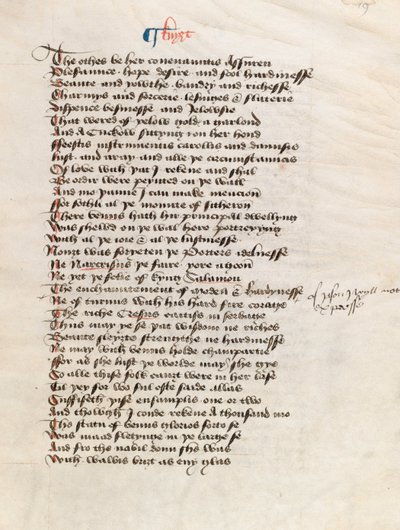 ¶ knyȝt
The othes þe her couenauntis assuren
Plesaunce hope desire and fool hardinesse
Beaute and yowthe baudry and richesse
Charmys and sorcerie lesinges & flaterie
Dispence besinesse and Jelowsie
That wered of ȝelow gold a garlond
And a Cuckow sittyng on her hond
ffeestis instrumentis carollis and daunsis
lust and aray and alle þe circumstauncis
Of loue with þat I rekene and shal
Be order were peynted on þe wall
And mo þanne I can make mencion
ffor sothli al þe mounte of sitheron
There venus hath hir principal dwellyng
Was shewed on þe wal here portreyyng
With al þe ioie & al þe lustinesse
Nouȝt was forȝeten þe Porters idelnesse
Ne Narcissus þe faire ȝore agoon
Ne ȝet þe folie of kyng Salamon
The enchauntement of medea & hardynesse
Ne of turnus with his hard fire corage
The riche Cresus caitif in seruage
Thus may ȝe se þat wisdom ne riches
Beaute sleyȝte strengthe ne hardinesse
Ne may with venus holde champartie
ffor as she lust þe worlde may she gye
Lo alle thise folk cauȝt were in her lase
Til þey for wo ful ofte saide allas
Suffiseth þise ensamplis one or two
And thowgh I coude rekene a thousand mo
The statu of venus glorios forto se
Was maad fletynge in þe large se
And fro the navil doun she was
With wawis briȝt as eny glas